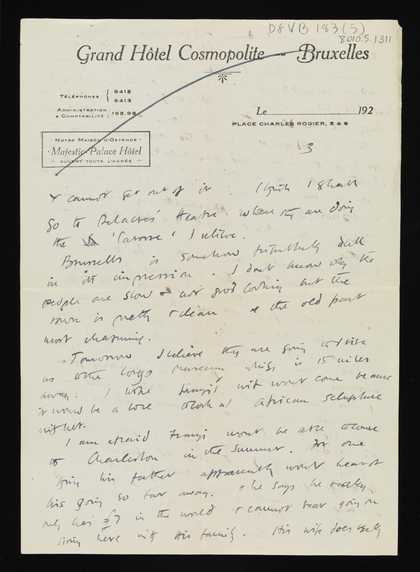 D8VB 183(5)
8010.5.1311
Grand Hôtel Cosmopolite - Bruxelles
TÉLÉPHONES
ADMINISTRATION
& COMPTABILITÉ
Le 192
PLACE CHARLES ROGIER,
NOTRE MAISON D'OSTENDE:
Majestic Palace Hôtel
OUVERT TOUTE L'ANNÉE
3
& cannot get out of it. I think I shall
go to Delacres' theatre when they are doing
the 'Carosse' I believe.
Brussels is somehow frightfully dull
in its impression. I don't know why the
people are slow & not good looking but the
town is pretty & clean & the old part
most charming.
Tomorrow I believe they are going to
us to the Congo museum which is 15 miles
away. I hope wife won't come because
it would be a bore to look at African sculpture
with her.
I am afraid won't be able to come
to Charleston in the summer. For one
thing his father apparently won't hear of
his going so far away. & he says he
only has in the world & cannot bear going on
living here with his family. His wife does